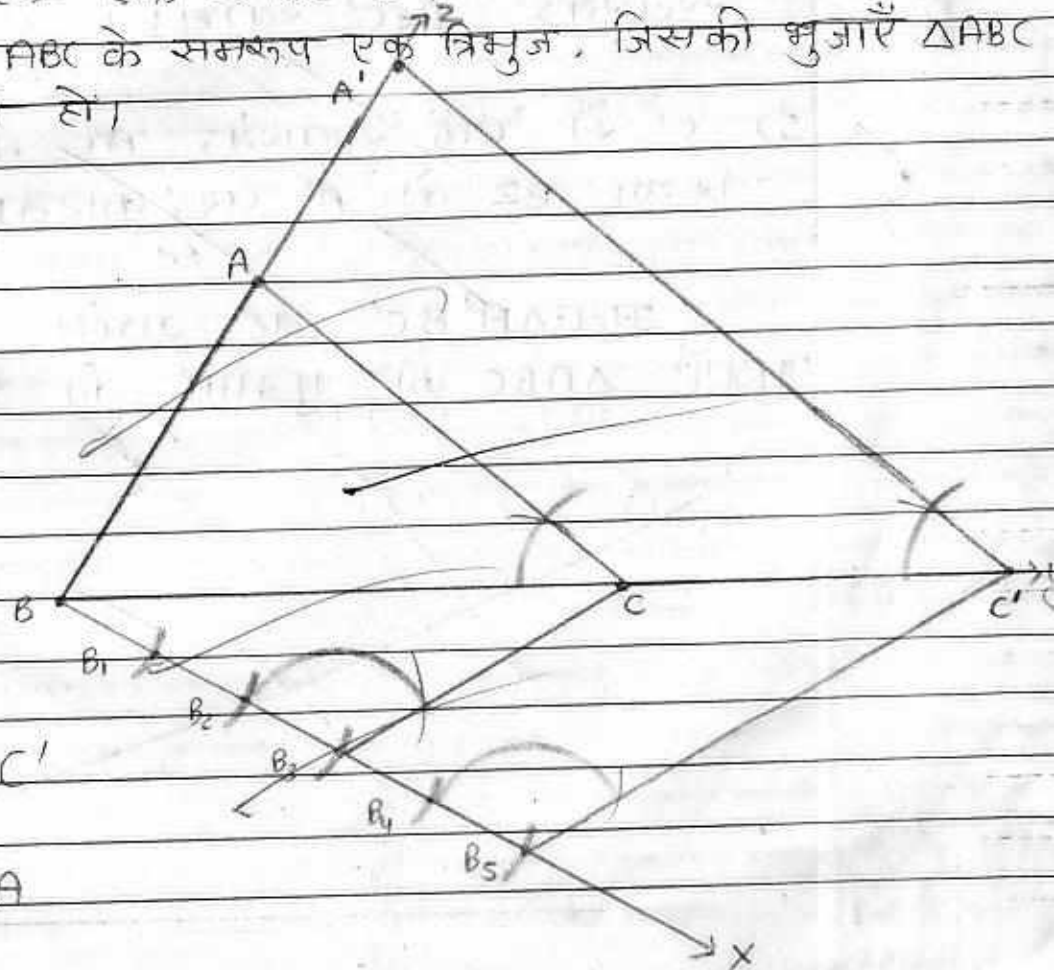 Z
ABC के समरूप एक त्रिभुज, जिसकी भुजाएँ △ABC
हों।
A'
A
B
C
C'
B₁
B₂
C'
B₃
B₄
B₅
A
X